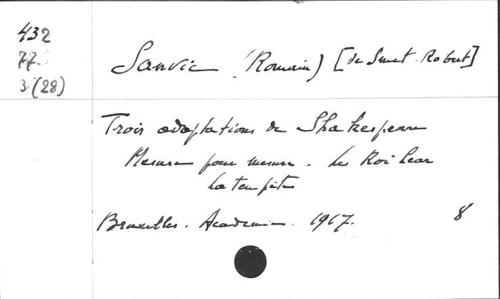 432
77
3(28)
Sanvic (Romain) [de Smet. Robert]
Trois adaptations de Shakespeare
Mesure pour mesure. Le Roi Lear
La tempête
Bruxelles. Academie. 1967. 8